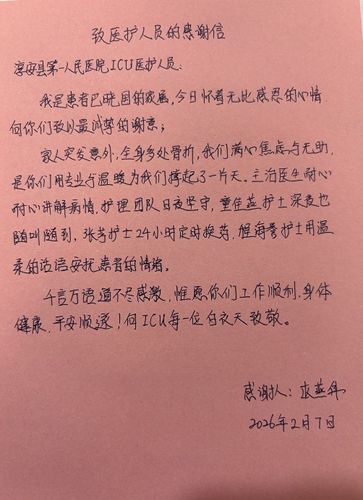 致医护人员的感谢信
淳安县第一人民医院ICU医护人员:
我是患者巴晓国的家属,今日怀着无比感恩的心情
向你们致以最诚挚的谢意;
家人突发意外,全身多处骨折,我们满心焦虑与无助,
是你们用专业与温暖为我们撑起了一片天。主治医生耐心
耐心讲解病情,护理团队日夜坚守,童佳燕护士深夜也
随叫随到,张芳护士24小时定时换药,护士用温
柔的话语安抚患者的情绪。
千言万语道不尽感激,惟愿你们工作顺利,身体
健康,平安顺遂!向ICU每一位白衣天致敬。
感谢人:
2026年2月7日